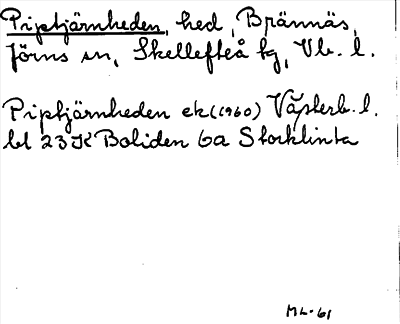 Piptjärnheden, hed, Brännäs,
Jörns sn, Skellefteå tg, Vb. l.
Piptjärnheden ek (1960) Västerb. l.
bl 23K Boliden 6a Storklinta
ML-61